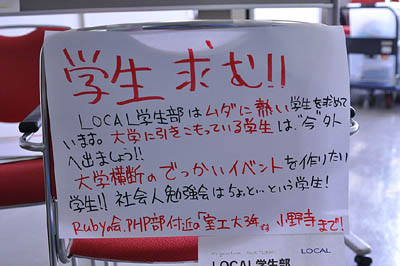 学生求む!!
LOCAL学生部はムダに熱い学生を求めて
います。大学に引きこもっている学生は、"今"外
へ出ましょう!!
大学横断のでっかいイベントを作りたい
学生!! 社会人勉強会はちょっと…という学生!
Rubyの会、PHP部付近の「室工大3年」小野寺まで!
LOCAL
LOCAL学生部